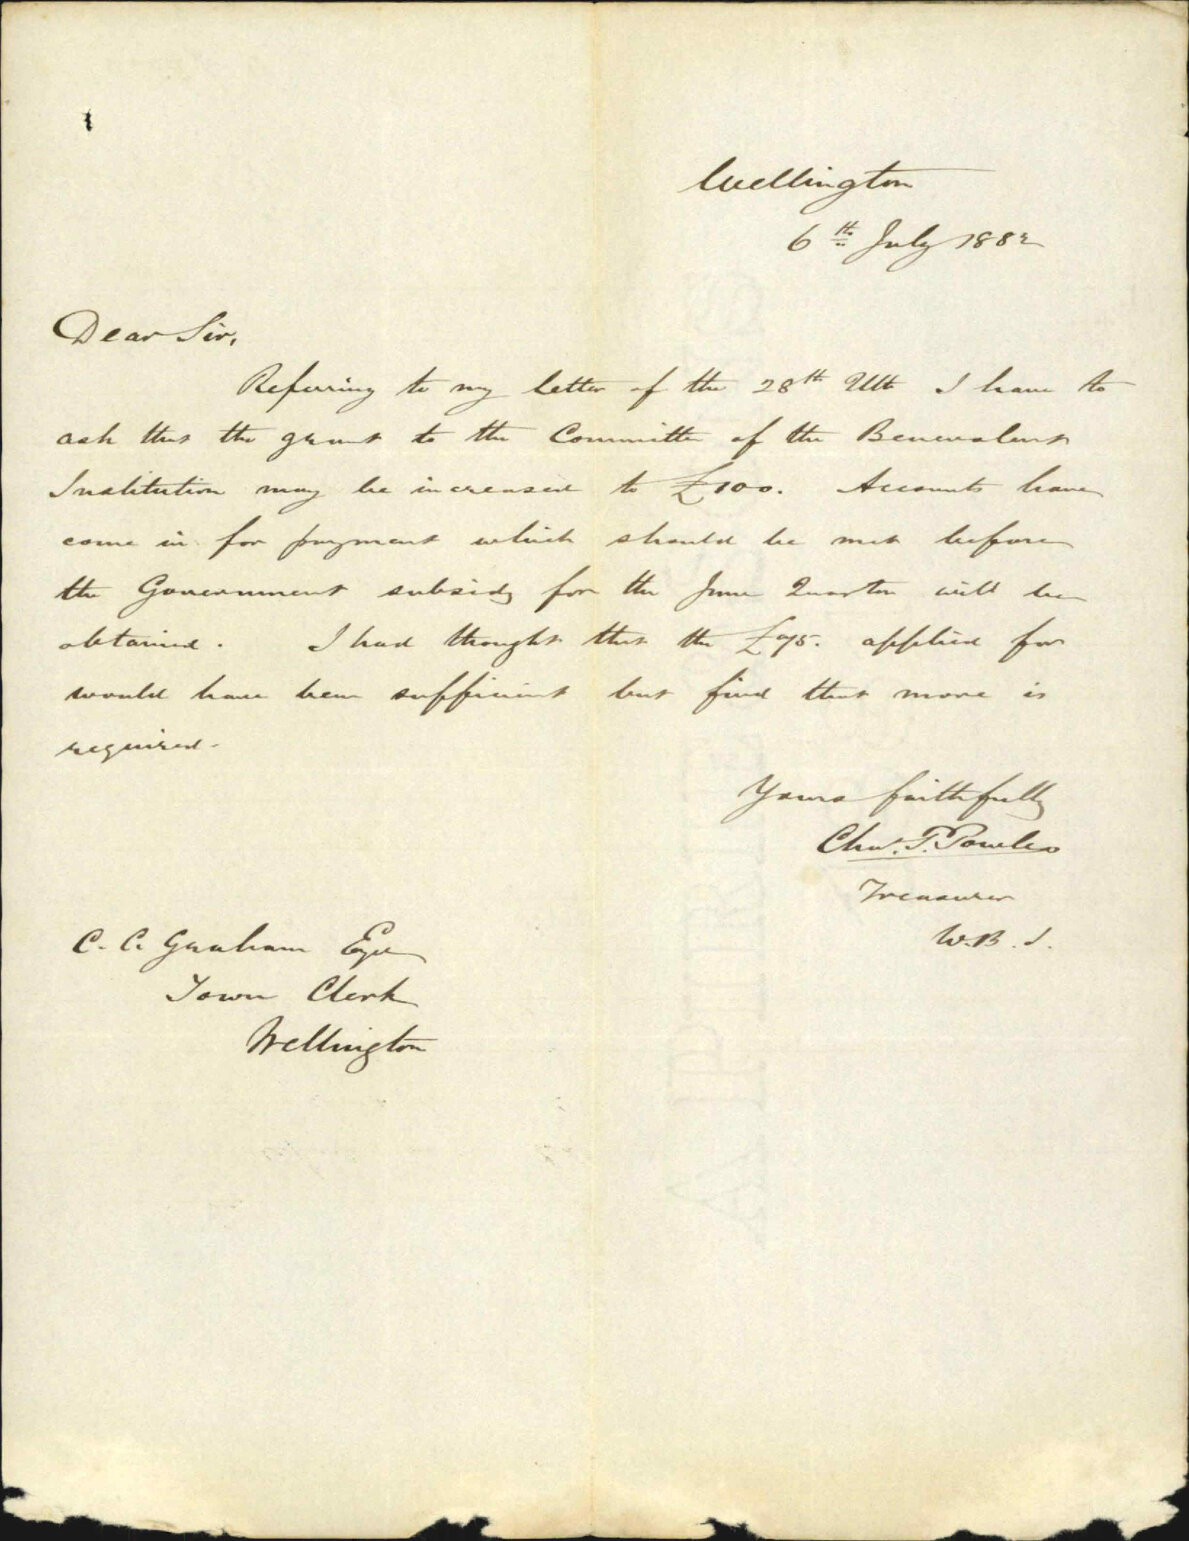 Wellington
6th July 1882
Dear Sir,
Referring to my letter of the 28th Ult I have to
ask that the grant to the Committee of the Benevolent
Institution may be increased to £100. Accounts have
come in for payment which should be met before
the Government subsidy for the June Quarter will be
obtained. I had thought that the £75. applied for
would have been sufficient but find that more is
required.
Yours faithfully
Chas. P. Powles
Treasurer
W.B.I.
C. C. Graham Esqre
Town Clerk
Wellington